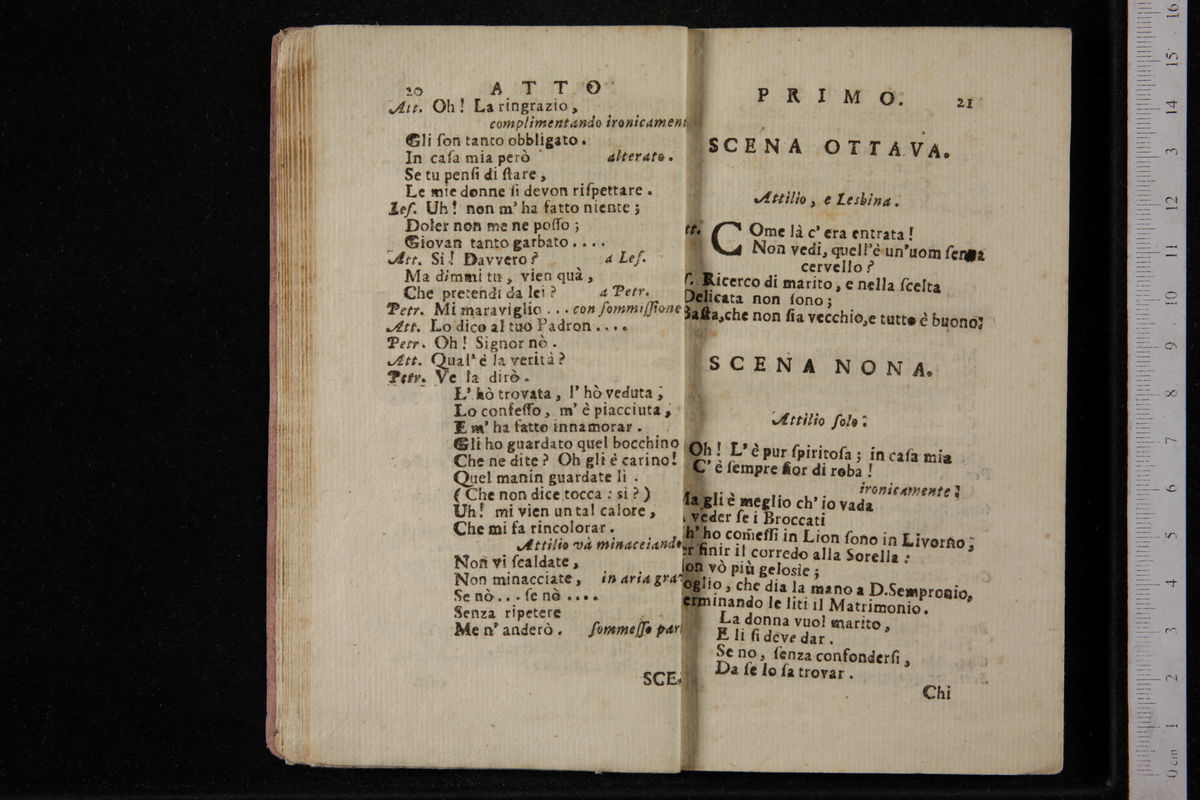 20 ATTO
Att. Oh! La ringrazio,
complimentando ironicament
Gli ſon tanto obbligato.
In caſa mia però alterato.
Se tu penſi di ſtare,
Le mie donne ſi devon riſpettare.
Leſ. Uh! non m'ha fatto niente;
Doler non me ne poſſo;
Giovan tanto garbato....
Att. Si! Davvero? a Leſ.
Ma dimmi tu, vien quà,
Che pretendi da lei? a Petr.
Petr. Mi maraviglio... con ſommiſſione
Att. Lo dico al tuo Padron....
Petr. Oh! Signor nò.
Att. Qual'è la verità?
Petr. Ve la dirò.
L'hò trovata, l'hò veduta;
Lo confeſſo, m'è piacciuta,
E m'ha fatto innamorar.
Gli ho guardato quel bocchino
Che ne dite? Oh gli è carino!
Quel manin guardate lì.
(Che non dice tocca: si?)
Uh! mi vien un tal calore,
Che mi fa rincolorar.
Attilio và minacciando
Non vi ſcaldate,
Non minacciate, in aria gra
Se nò... ſe nò....
Senza ripetere
Me n'anderò. ſommeſſo par
SCE.
PRIMO. 21
SCENA OTTAVA.
Attilio, e Lesbina.
tt. COme là c'era entrata!
Non vedi, quell'è un'uom ſenza
cervello?
ſ. Ricerco di marito, e nella ſcelta
Delicata non ſono;
Baſta, che non ſia vecchio, e tutto è buono.
SCENA NONA.
Attilio ſolo.
Oh! L'è pur ſpiritoſa; in caſa mia
C'è ſempre fior di roba!
ironicamente.
Ma gli è meglio ch'io vada
veder ſe i Broccati
h'ho com̃eſſi in Lion ſono in Livorno;
er finir il corredo alla Sorella:
on vò più geloſie;
oglio, che dia la mano a D. Sempronio,
erminando le liti il Matrimonio.
La donna vuol marito,
E li ſi deve dar.
Se no, ſenza confonderſi,
Da ſe lo ſa trovar.
Chi